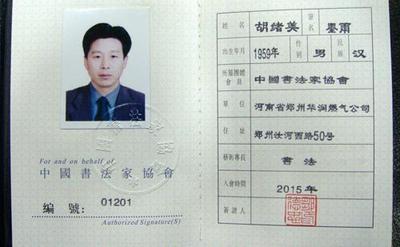 For and on behalf of
中國書法家協會
編 號: 01201
Authorized Signature(S)
姓名 胡绪美 筆名 墨爾
出生年月 1959年 性別 男 民族 汉
所屬團體會員 中國書法家協會
單位 河南省郑州华润燃气公司
住址 郑州汝河西路50号
藝術專長 书法
入會時間 2015年
簽證人